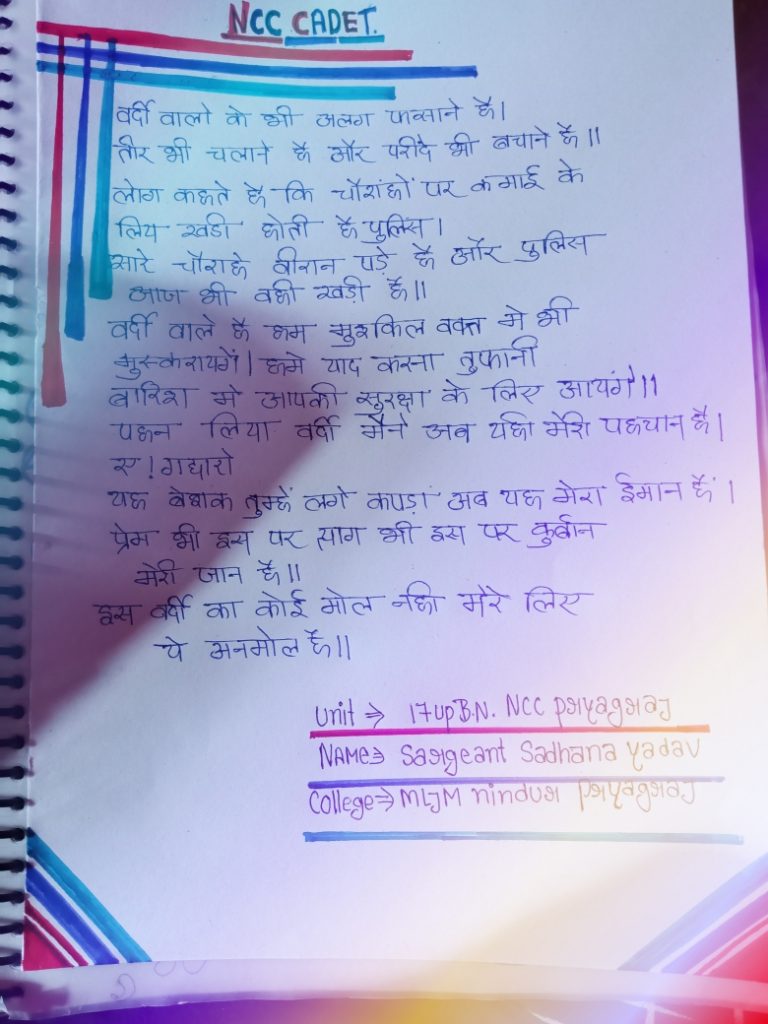 NCC CADET.
वर्दी वालो के भी अलग फसाने है।
तीर भी चलाने है और परीदे भी बचाने है॥
लोग कहते है कि चौरांहों पर कमाई के
लिय खडी होती है पुलिस।
सारे चौराहे वीरान पड़े है और पुलिस
आज भी वही खडी है॥
वर्दी वाले है हम मुश्किल वक्त मे भी
मुस्करायगें। हमे याद करना तुफानी
बारिश मे आपकी सुरक्षा के लिए आयंगे॥
पहन लिया वर्दी मैने अब यही मेरी पहचान है।
ए! गद्दारो
यह बेशक तुम्हें लगे कपड़ा अब यह मेरा ईमान हैं।
प्रेम भी इस पर त्याग भी इस पर कुर्बान
मेरी जान है॥
इस वर्दी का कोई मोल नही मेरे लिए
ये अनमोल है॥
Unit ⇒ 17 up B.N. NCC Prayagraj
NAME⇒ Sargeant Sadhana yadav
College⇒ MLJM nindur Prayagraj